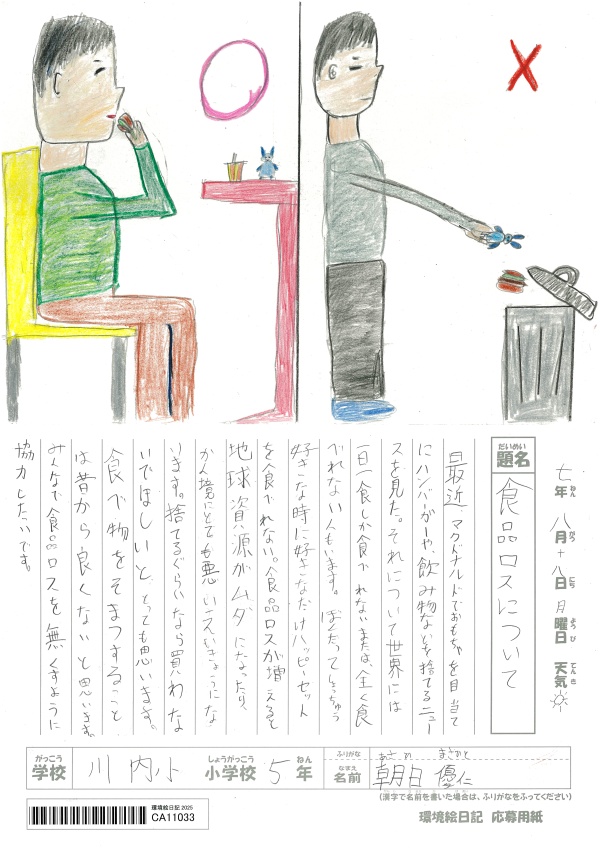 七年 八月十八日 月曜日 天気
ねん がつ にち ようび てんき
だいめい
題名 食品ロスについて
最近、マクドナルドでおもちゃを目当て
にハンバーガーや、飲み物などを捨てるニュー
スを見た。それについて世界には
一日一食しか食べれないまたは、全く食
べれない人もいます。ぼくだってしょっちゅう
好きな時に好きなだけハッピーセット
を食べれない。食品ロスが増えると
地球資源がムダになったり、
かん境にとても悪いえいきょうにな
ります。捨てるぐらいなら買わな
いでほしいと、とっても思います。
食べ物をそまつすること
は昔から良くないと思います。
みんなで食品ロスを無くすように
協力したいです。
がっこう しょうがっこう ねん ふりがな あさひ まさのと
学校 川内小 小学校 5年 なまえ 名前 朝日 優仁
(漢字で名前を書いた場合は、ふりがなをふってください)
環境絵日記 2025
CA11033
環境絵日記 応募用紙